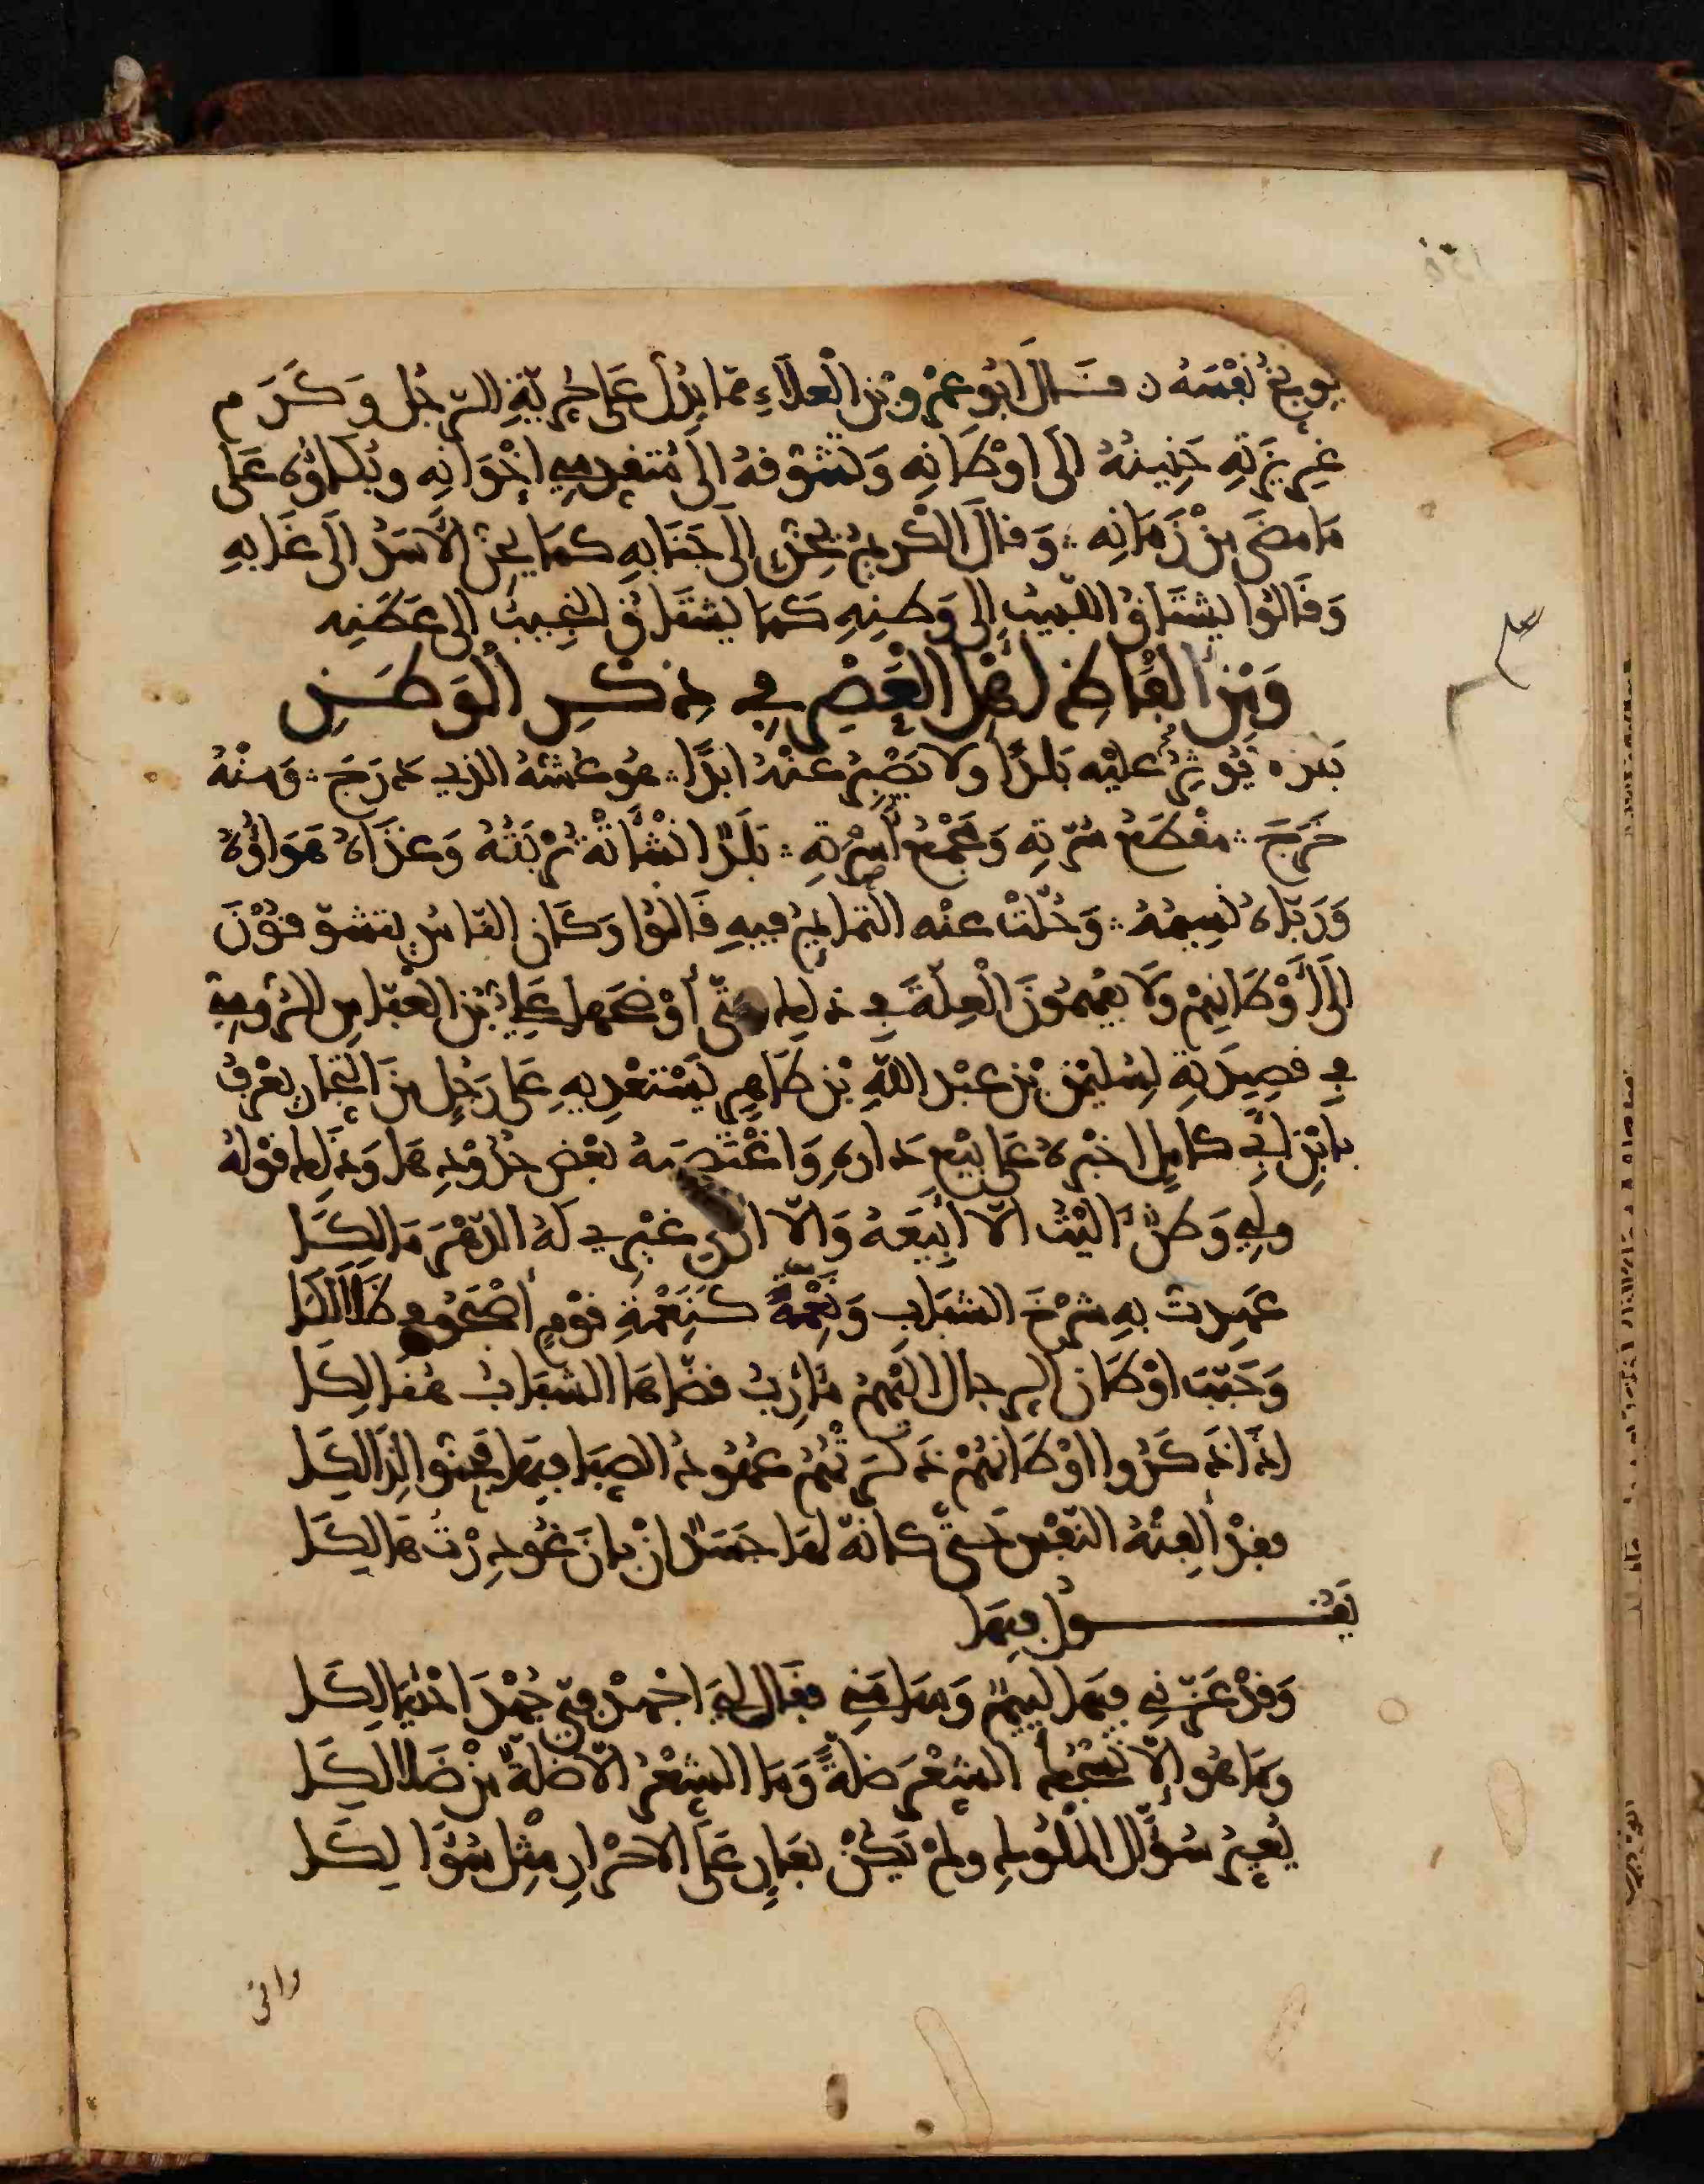 يوبخ نفسه قال ابو عمرو بن العلاء مما يدل على حرية الرجل وكرم
غريزته حنينه الى اوطانه وتشوقه الى متقدمي اخوانه وبكاؤه على
ما مضى من زمانه وقال الكريم يحن الى جنابه كما يحن الاسد الى غابه
وقالوا يشتاق اللبيب الى وطنه كما يشتاق النجيب الى عطنه
ومن الفاظ اهل العصر في ذكر الوطن
بلد لا يؤثر عليه بلدا ولا يصبر عنه ابدا هو عشه الذي درج ومنه
خرج مقطع سرته ومجمع اسرته بلد انشأته تربته وغذاه هواؤه
ورباه نسيمه وحلت عنه التمائم فيه قالوا وكان الناس يتشوقون
الى أوطانهم ولا يفهمون العلة في ذلك حتى أوضحها علي بن العباس الرومي
في قصيدة لسليمن بن عبد الله بن طاهر يستعديه على رجل من التجار يعرف
بابن ابي كامل اجبره على بيع داره واغتصبه بعض حدودها وذلك قوله
ولي وطن آليت الا ابيعه والا ارى غيري له الدهر مالكا
عهدت به شرخ الشباب ونعمة كنعمة قوم أصبحوا في ظلالكا
وحبب اوطان الرجال اليهم مآرب قضاها الشباب هنالكا
اذا ذكروا اوطانهم ذكرتهم عهود الصبا فيها فحنوا لذالكا
فقد ألفته النفس حتى كانه لها جسد ان بان غودرت هالكا
يقول فيها
وقد عزني فيها لئيم وسامني فقال لي اجهد في جهد احتيالكا
وما هو إلا نسجك الشعر ضلة وما الشعر الا ضلة من ضلالكا
يعير سؤال الملوك ولم يكن بعار على الاحرار مثل سؤالكا
وانى